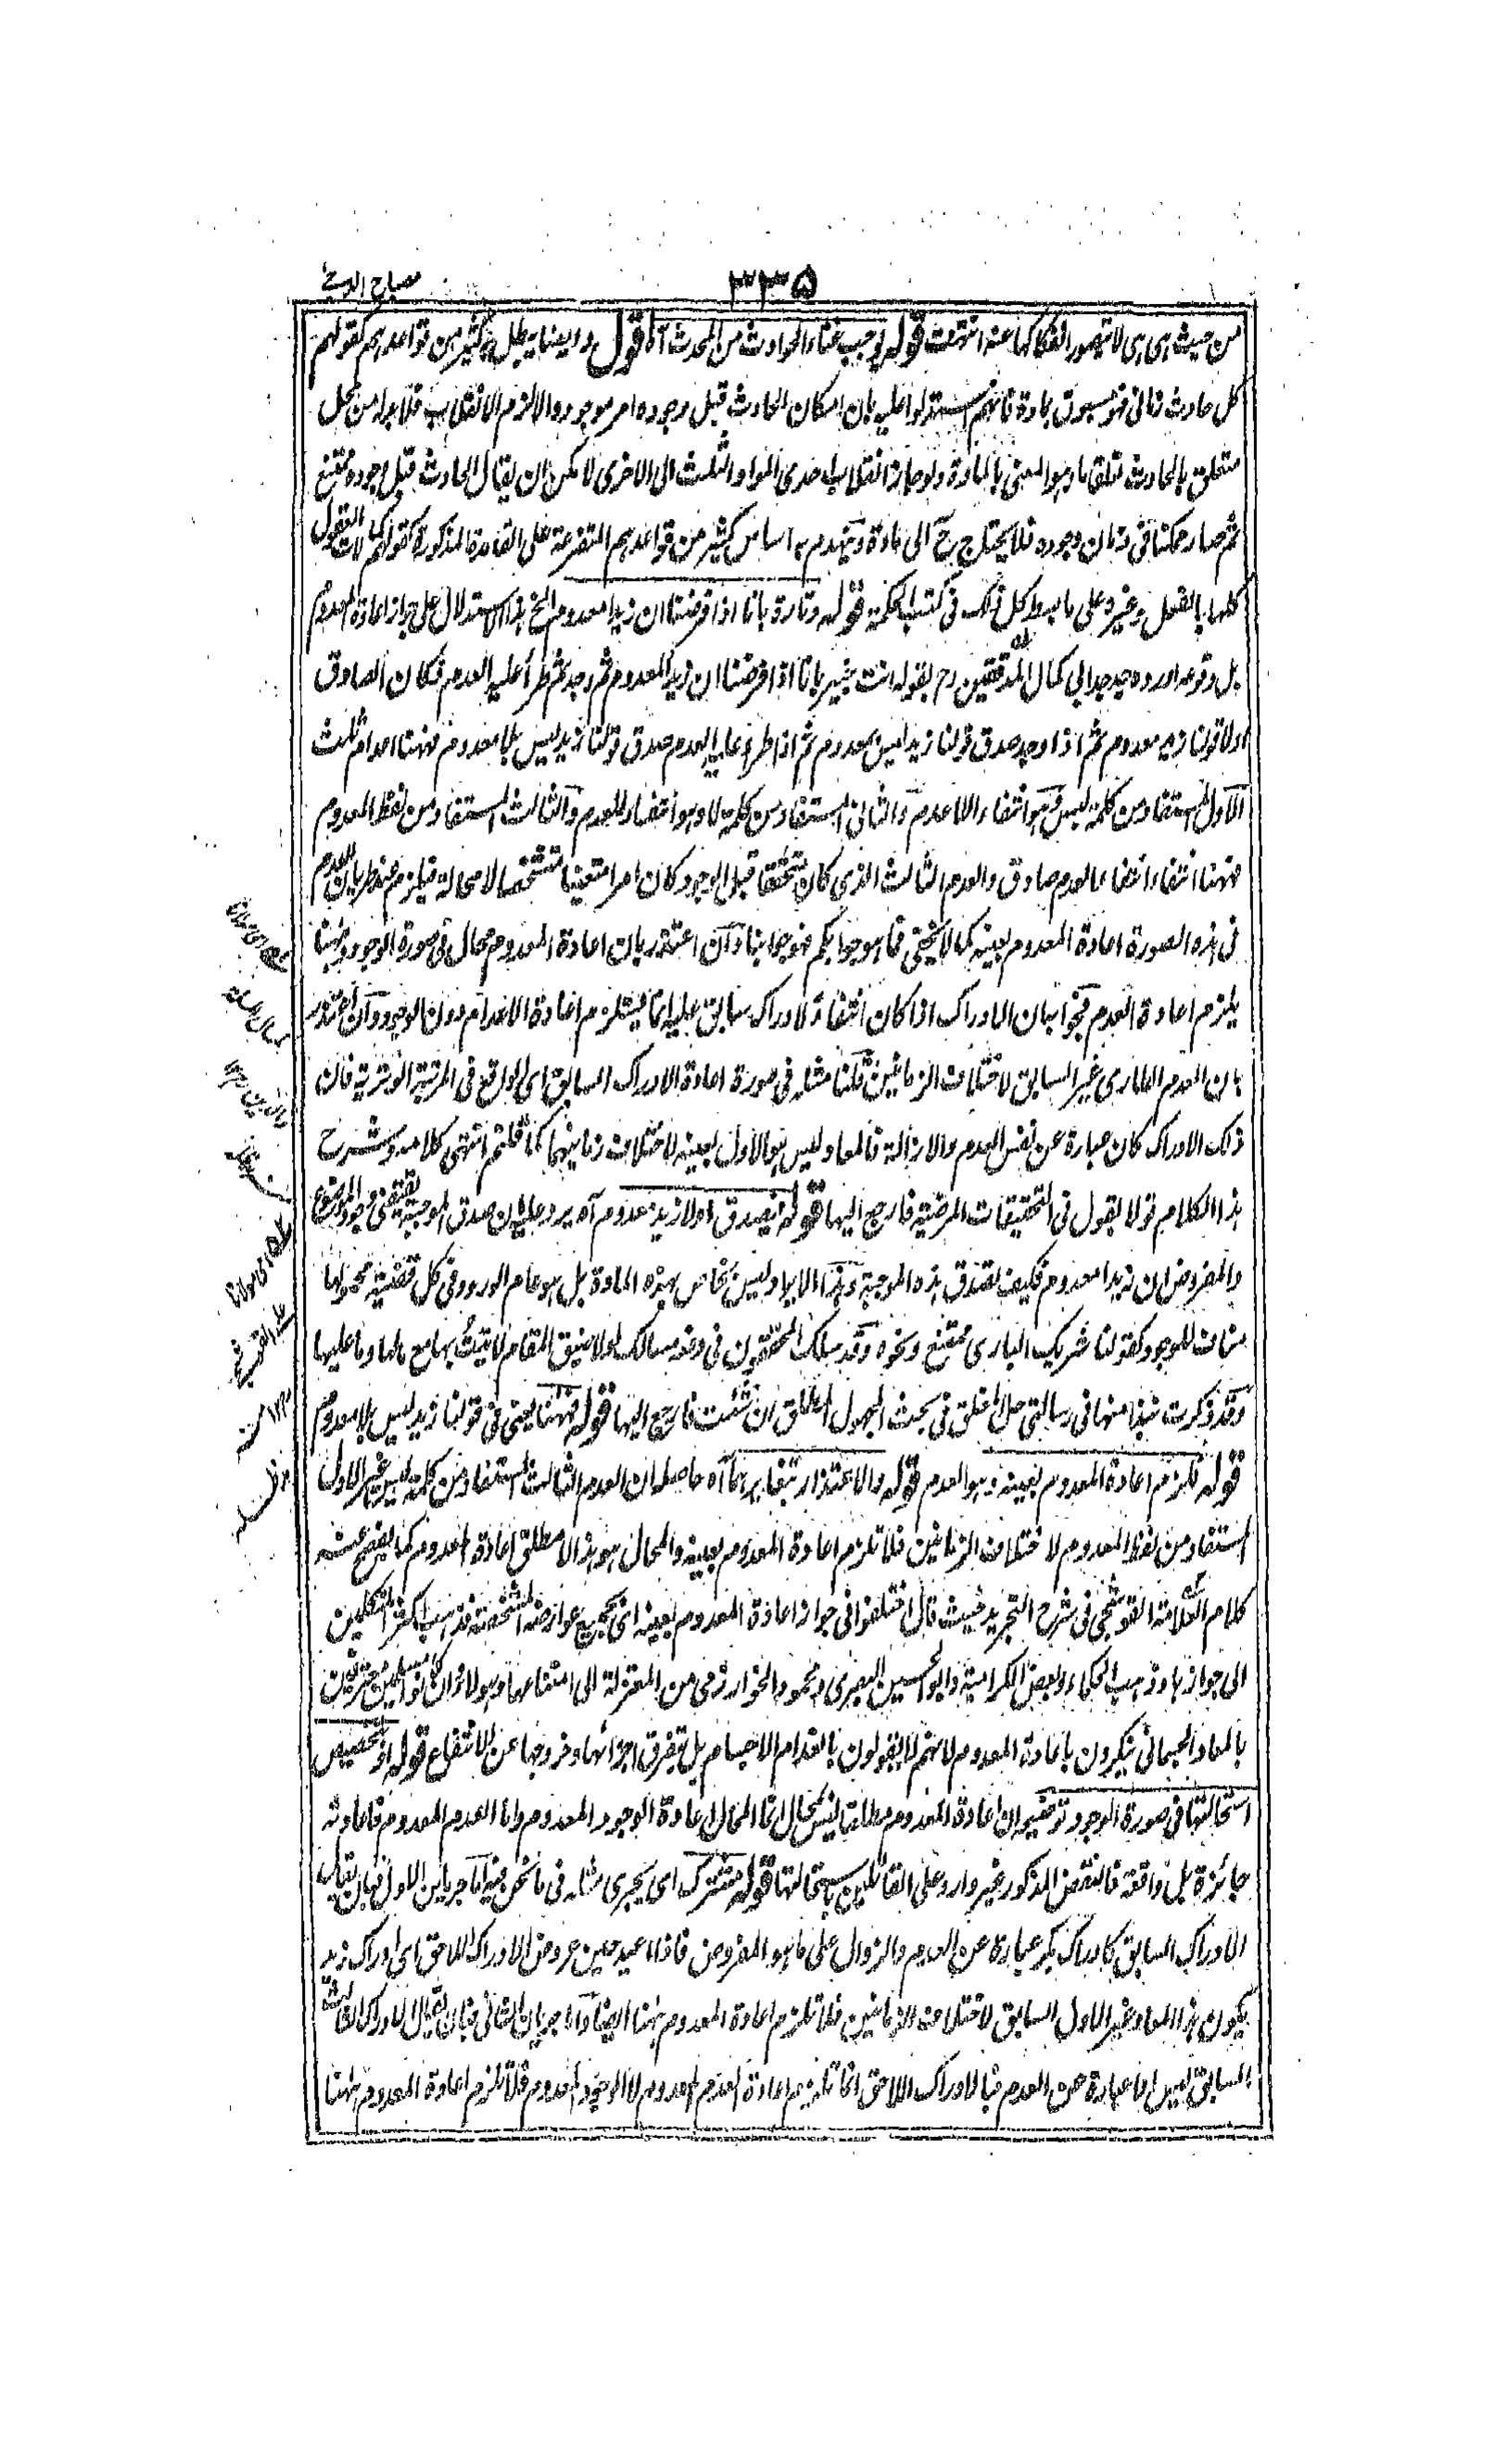 ٣٣٥
مصباح الدجى
من حيث هى هى لا يتصور انفكاكها عنه انتهت قوله يوجب غناء الحوادث من المحدث آه اقول وايضا يبطل به كثير من قواعدهم كقولهم
كل حادث زمانى فهو مسبوق بمادة فانهم استدلوا عليه بان امكان الحادث قبل وجوده امر موجود والا لزم الانقلاب فلا بد له من محل
متعلق بالحادث تعلقا ما وهو المعنى بالمادة ولو جاز انقلاب احدى المواد الثلث الى الاخرى لا مكن ان يقال الحادث قبل وجوده ممتنع
ثم صار ممكنا فى زمان وجوده فلا يحتاج ح الى مادة وينهدم به اساس كثير من قواعدهم المتفرعة على القاعدة المذكورة كقولهم كمالات العقول
كلها بالفعل وغيره على ما بسط كل ذلك فى كتب الحكمة قوله وتارة بانا اذا فرضنا ان زيدا معدوم الخ هذا استدلال على جواز اعادة المعدوم
بل وقوعه اورده جد جد ابى كمال المدققين رح بقوله انت خبير بانا اذا فرضنا ان زيدا المعدوم ثم وجد ثم طرأ عليه العدم فكان الصادق
اولا قولنا زيد معدوم ثم اذا وجد صدق قولنا زيد ليس بمعدوم ثم اذا طرء عليه العدم صدق قولنا زيد ليس بلا معدوم فههنا اعدام ثلث
الاول المستفاد من كلمة ليس وهو انتفاء اللاعدم والثانى المستفاد من كلمة لا وهو انتفاء للعدم والثالث المستفاد من لفظ المعدوم
فههنا انتفاء انتفاء العدم صادق والعدم الثالث الذى كان متحققا قبل الوجود كان امرا متعينا متشخصا لا محالة فيلزم عند طريان العدم
فى هذه الصورة اعادة المعدوم بعينه كما لا يخفى فما هو جوابكم فهو جوابنا وان اعتذر بان اعادة المعدوم محال فى صورة الوجود وههنا
يلزم اعادة العدم فجوابه ان الادراك اذا كان انتفاء لادراك سابق عليه انما يستلزم اعادة الاعدام دون الوجود وان اعتذر
بان العدم الطارى غير السابق لاختلاف الزمانين قلنا مثله فى صورة اعادة الادراك السابق اى الواقع فى المرتبة الوترية فان
ذلك الادراك كان عبارة عن نفس العدم والازالة فالمعاد ليس هو الاول بعينه لاختلاف زمانيهما كما قلتم انتهى كلامه وشرح
هذا الكلام قولا بقول فى التحقيقات المرضية فارجع اليها قوله فيصدق اولا زيد معدوم آه يرد عليه ان صدق الموجبة يقتضى وجود الموضوع
والمفروض ان زيدا معدوم فكيف تصدق هذه الموجبة وهذا الايراد ليس بخاص بهذه المادة بل هو عام الورود فى كل قضية محمولها
مناف للوجود كقولنا شريك البارى ممتنع ونحوه وقد سلك المحققون فى دفعه مسالك لولا ضيق المقام لاتيت بها مع ما لها وما عليها
وقد ذكرت نبذا منها فى رسالتى حل المغلق فى بحث المجهول المطلق ان شئت فارجع اليها قوله فههنا يعنى فى قولنا زيد ليس بلا معدوم
قوله فلزم اعادة المعدوم بعينه وهو العدم قوله والاعتذار بتغايرهما آه حاصله ان العدم الثالث المستفاد من كلمة ليس غير الاول
المستفاد من لفظ المعدوم لاختلاف الزمانين فلا تلزم اعادة المعدوم بعينه والمحال هو هذا لا مطلق اعادة المعدوم كما يفصح عنه
كلام العلامة القوشجى فى شرح التجريد حيث قال اختلفوا فى جواز اعادة المعدوم بعينه اى بجميع عوارضه المشخصة فذهب اكثر المتكلمين
الى جوازها وذهب الحكماء وبعض الكرامية وابو الحسين البصرى ومحمود الخوارزمى من المعتزلة الى امتناعها وهؤلاء وان كانوا مسلمين معترفين
بالمعاد الجسمانى ينكرون باعادة المعدوم لانهم لا يقولون بانعدام الاجسام بل بتفرق اجزائها وخروجها عن الانتفاع قوله او تخصيص
استحالتها فى صورة الوجود توضيحه ان اعادة المعدوم مطلقا ليس بمحال انما المحال اعادة الوجود المعدوم واما العدم المعدوم فاعادته
جائزة بل واقعة فالنقض المذكور غير وارد على القائلين باستحالتها قوله مشترك اى يجرى مثله فى ما نحن فيه اما جريان الاول فبان يقال
الادراك السابق كادراك بكر عبارة عن العدم والزوال على ما هو المفروض فاذا اعيد حين عروض الادراك اللاحق اى ادراك زيد
يكون هذا المعاد غير الاول السابق لاختلاف الزمانين فلا تلزم اعادة المعدوم ههنا ايضا واما جريان الثانى فبان يقال الادراك الثالث
السابق ليس الا عبارة عن العدم فبالادراك اللاحق انما تلزم اعادة العدم المعدوم لا الوجود المعدوم فلا تلزم اعادة المعدوم ههنا